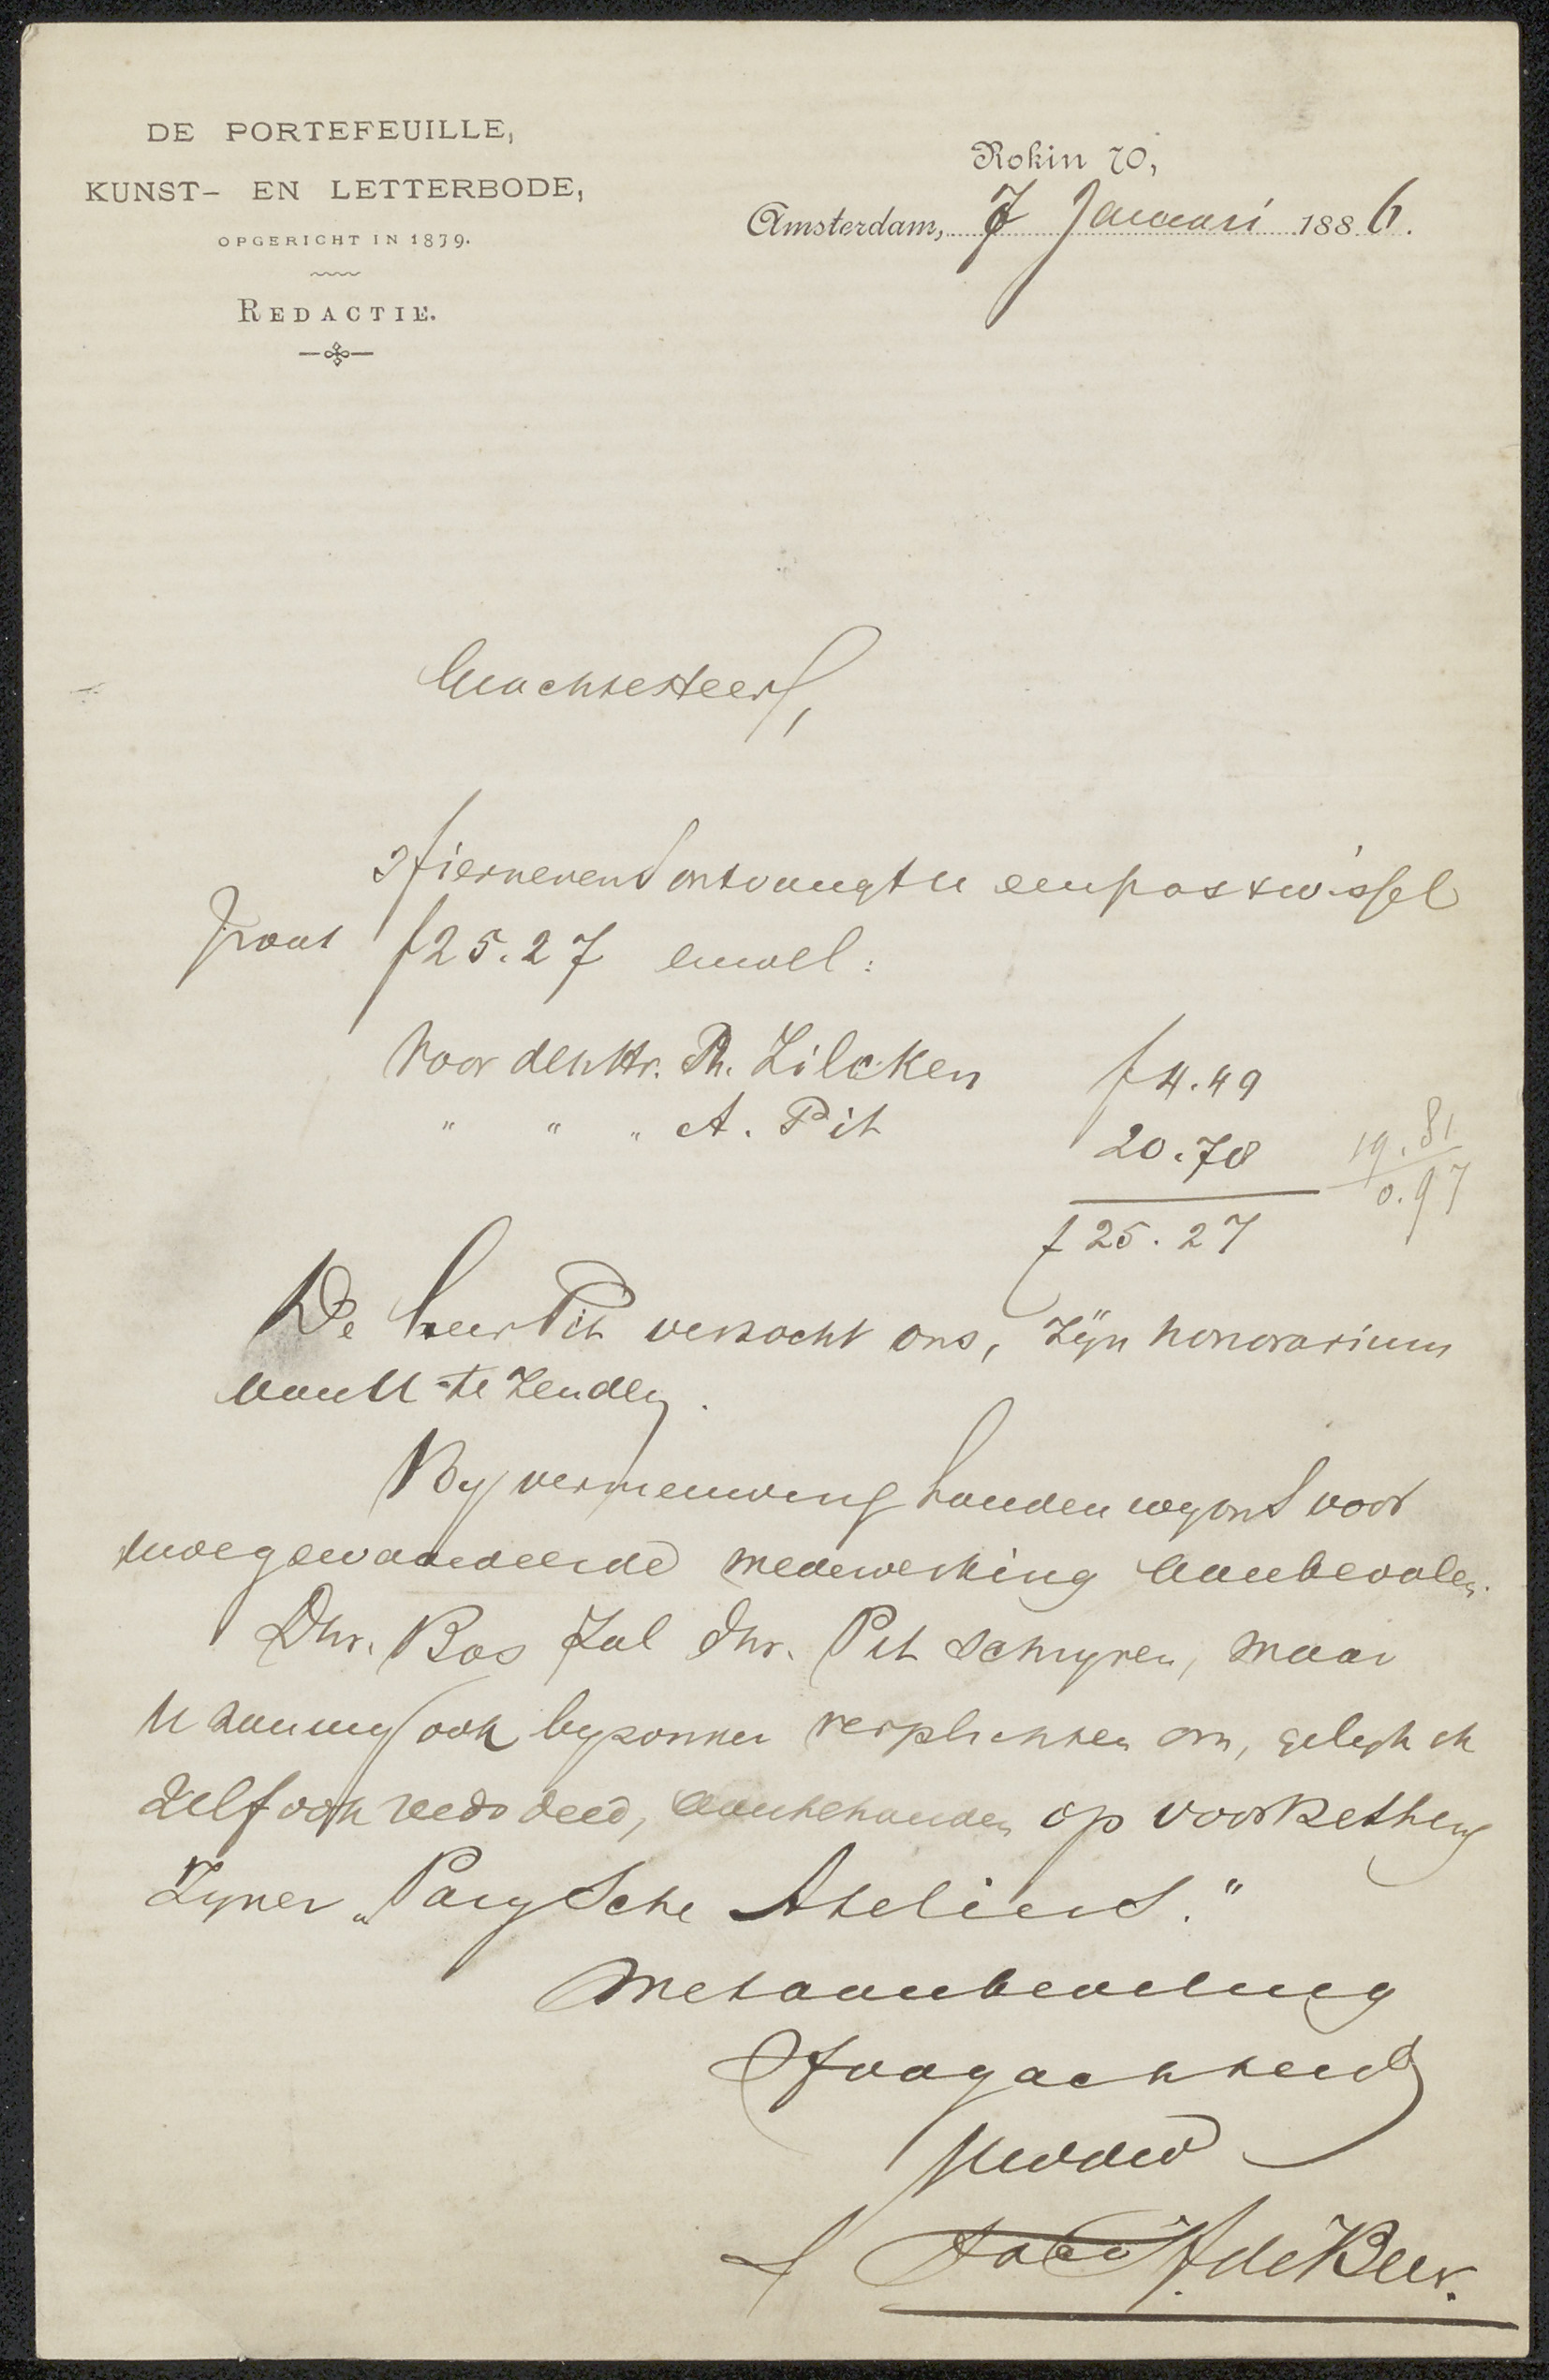 DE PORTEFEUILLE,
KUNST- EN LETTERBODE,
OPGERICHT IN 1879.
REDACTIE.
Rokin 70,
Amsterdam, 7 Januari 1886.
Geachte Heer,
Hiernevens ontvangt u een postwissel
groot f 25.27 en wel:
Voor den Hr. Ph. Zilcken f 4.49
" " " A. Pit 20.78 19.81
0.97
f 25.27
De heer Pit verzocht ons, zijn honorarium
aan U te zenden.
By vernieuwing houden wy ons voor
uwe gewaardeerde medewerking aanbevolen.
Dhr. Bos zal dhr. Pit schryven, maar
U kan my ook byzonder verplichten om, gelyk ik
zelf ook reeds deed, aan te houden op voortzetting
zyner „Parysche Ateliers."
Met aanbeveling
Hoogachtend
UwddW
J. de Beer.